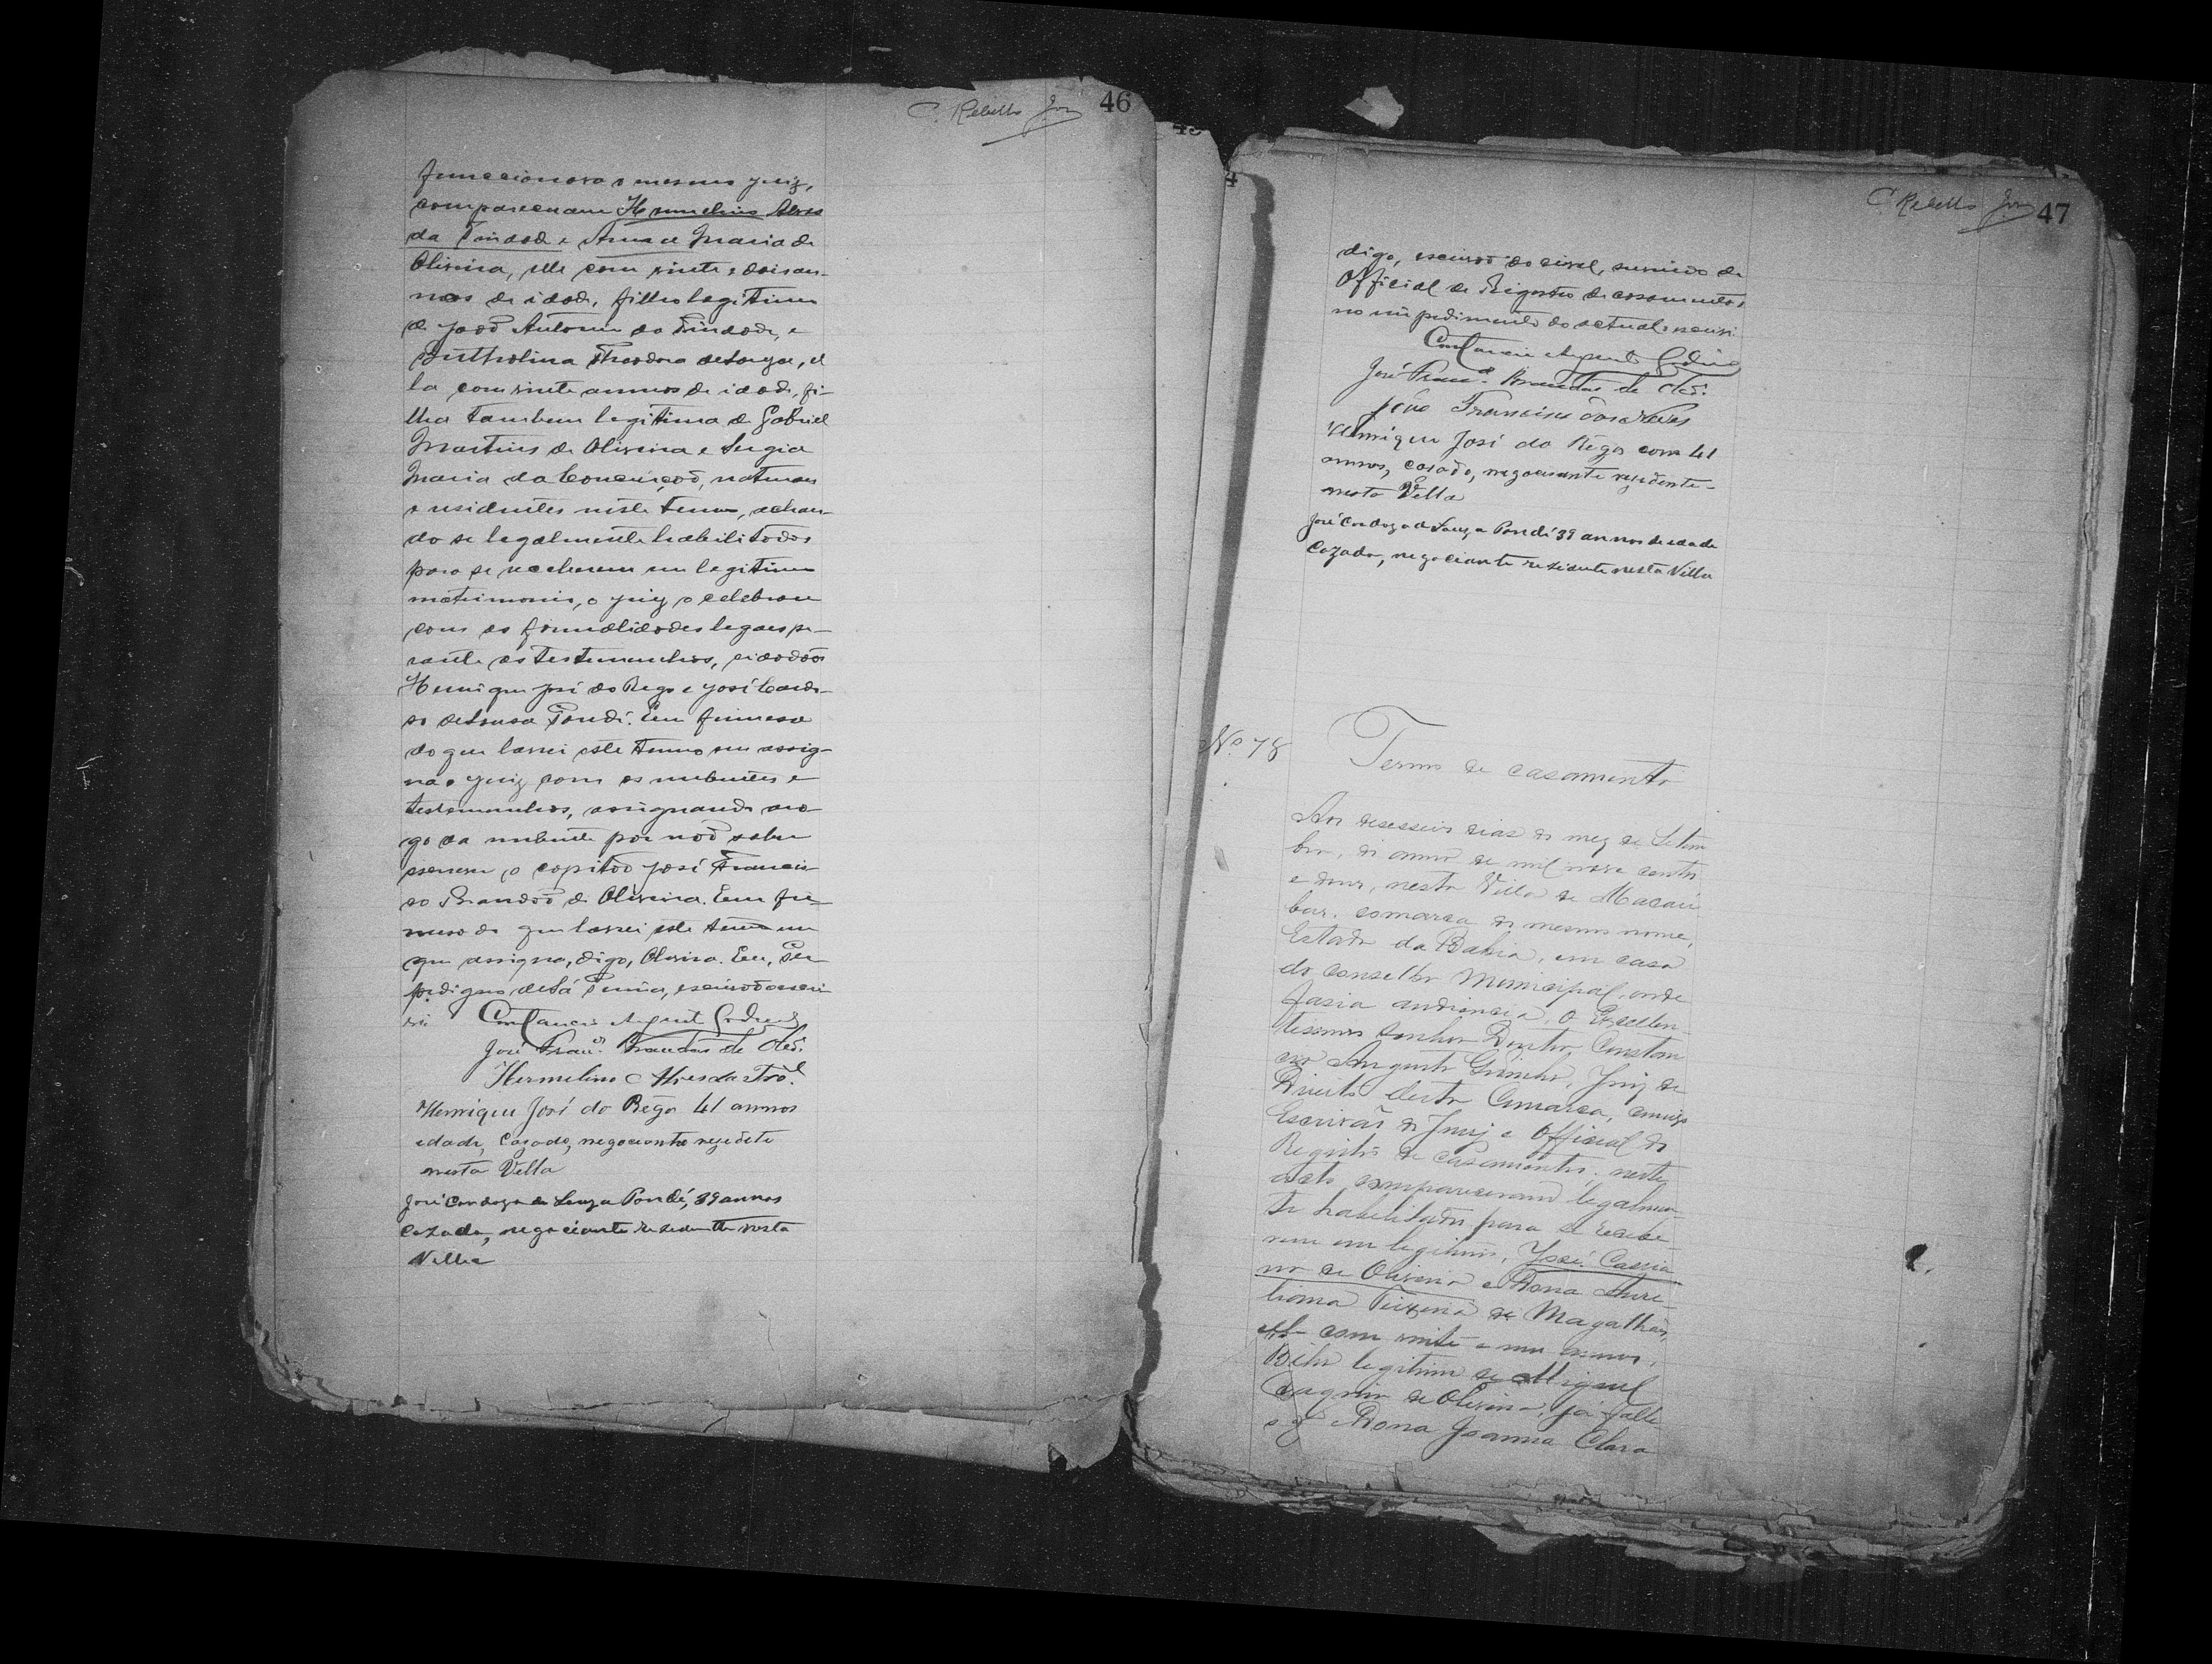 C. Rebello Jor 46
funccionava o mesmo juiz,
compareceram Hermelino Alves
da Trindade e Anna Maria de
Oliveira, elle com vinte e dois an-
nos de idade, filho legitimo
de João Antonio da Trindade, e
Theodora de Souza, el
la com vinte annos de idade, fi-
lha tambem legitima de Gabriel
Martins de Oliveira e Sergia
Maria da Conceição, naturaes
e residentes neste termo, achan-
do se legalmente habilitados
para se receberem em legitimo
matrimonio, o juiz o celebrou
com as formalidades legaes pe-
rante as testemunhas, cidadãos
Henrique José do Rego e José Cardo-
so de Sousa Pondé. Em firmesa
do que lavrei este termo em assig-
na o juiz com os nubentes e
testemunhas, assignando a ro-
go da nubente por não saber
escrever o capitão José Francis-
co Brandão de Oliveira. Em fir-
mesa do que lavrei este termo em
que assigna, digo, Oliveira. Eu,
de Sá escrivão o escre-
vi
José Franco. Brandão de Olivª.
Hermelino Alves da
Henrique José do Rêgo 41 annos
edade, Cazado, negociante rezedete
nesta Villa
José Cardozo de Souza Pondé, 39 annos
Cazado, negociante residente nesta
Villa
C. Rebello Jor 47
digo, escrivão do civel, servindo de
Official de Registro de casamentos
no impedimento do actual o escrevi.
José Franco. Brandão de Olivª.
João Francisco das Neves
Henrique José do Rêgo com 41
annos, casado, negociante rezidente
nesta Villa
José Cardozo de Souza Pondé 39 annos de edade
Cazado, negociante residente nesta Villa
Nº 78
Termo de casamento
Aos desesseis dias do mez de Setem
bro, do anno de mil nove centos
e dous, nesta Villa de Macau
bas, comarca do mesmo nome,
Estado da Bahia, em casa
do conselho Municipal, onde
fasia audiencia, o Excellen-
tissimo Senhor Doutor Constan
cio Augusto Juiz de
Direito desta Comarca, comigo
Escrivão do Juiz e Official do
Registro de Casamentos, neste
acto compareceram legalmen-
te habilitados para se recebe-
rem em legitimo, José Cassia
no de Oliveira e Dona Aure-
liana Teixeira de Magalhães,
elle com vinte e um annos,
filho legitimo de Miguel
de Oliveira, já falle
Dona Joanna Clara